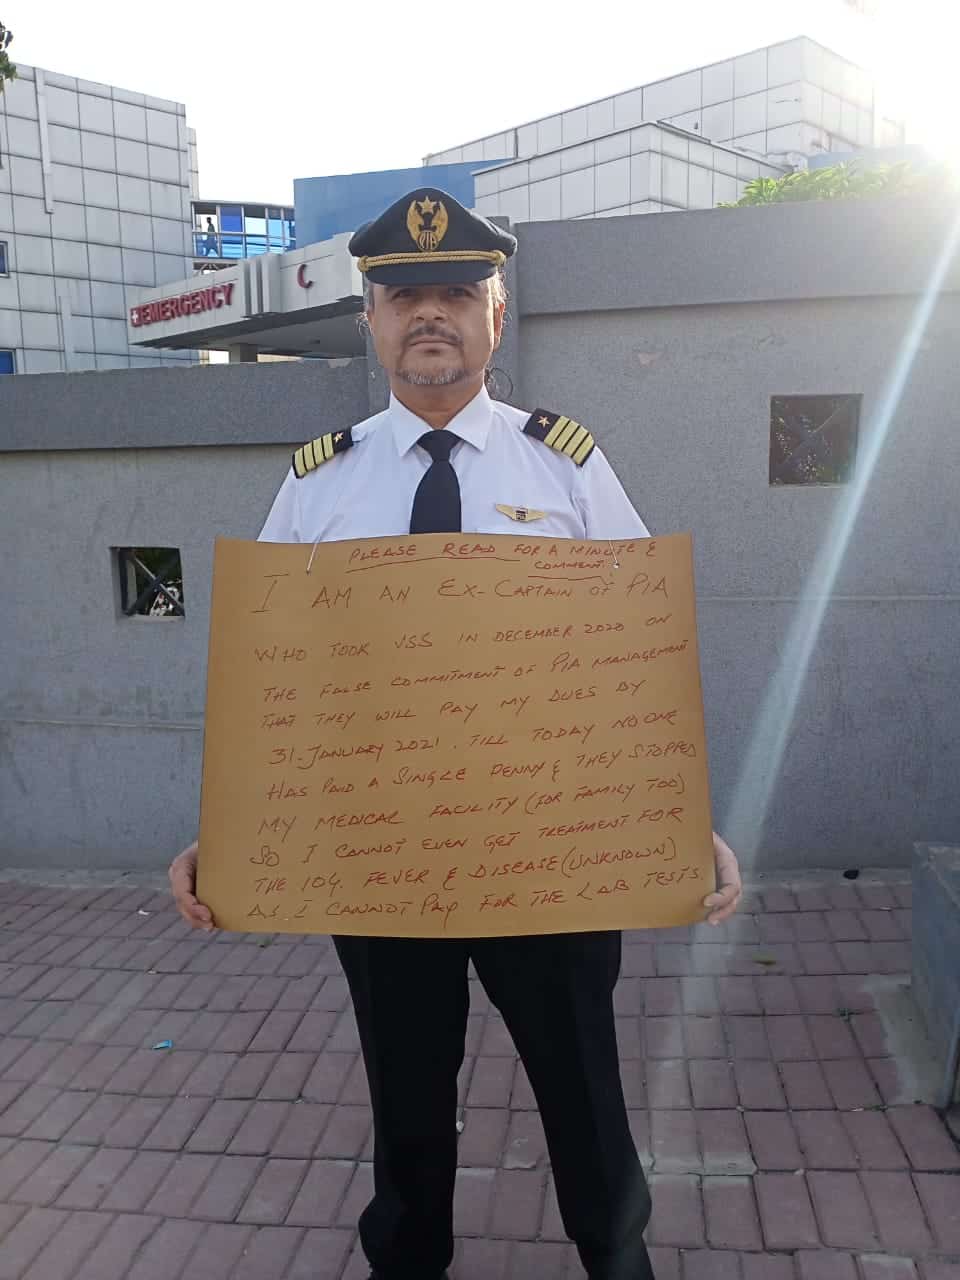 EMERGENCY
PIA
PLEASE READ FOR A MINUTE &
COMMENT.
I AM AN EX-CAPTAIN OF PIA
WHO TOOK VSS IN DECEMBER 2020 ON
THE FALSE COMMITMENT OF PIA MANAGEMENT
THAT THEY WILL PAY MY DUES BY
31-JANUARY 2021. TILL TODAY NO ONE
HAS PAID A SINGLE PENNY & THEY STOPPED
MY MEDICAL FACILITY (FOR FAMILY TOO)
SO I CANNOT EVEN GET TREATMENT FOR
THE 104. FEVER & DISEASE (UNKNOWN)
AS I CANNOT PAY FOR THE LAB TESTS.